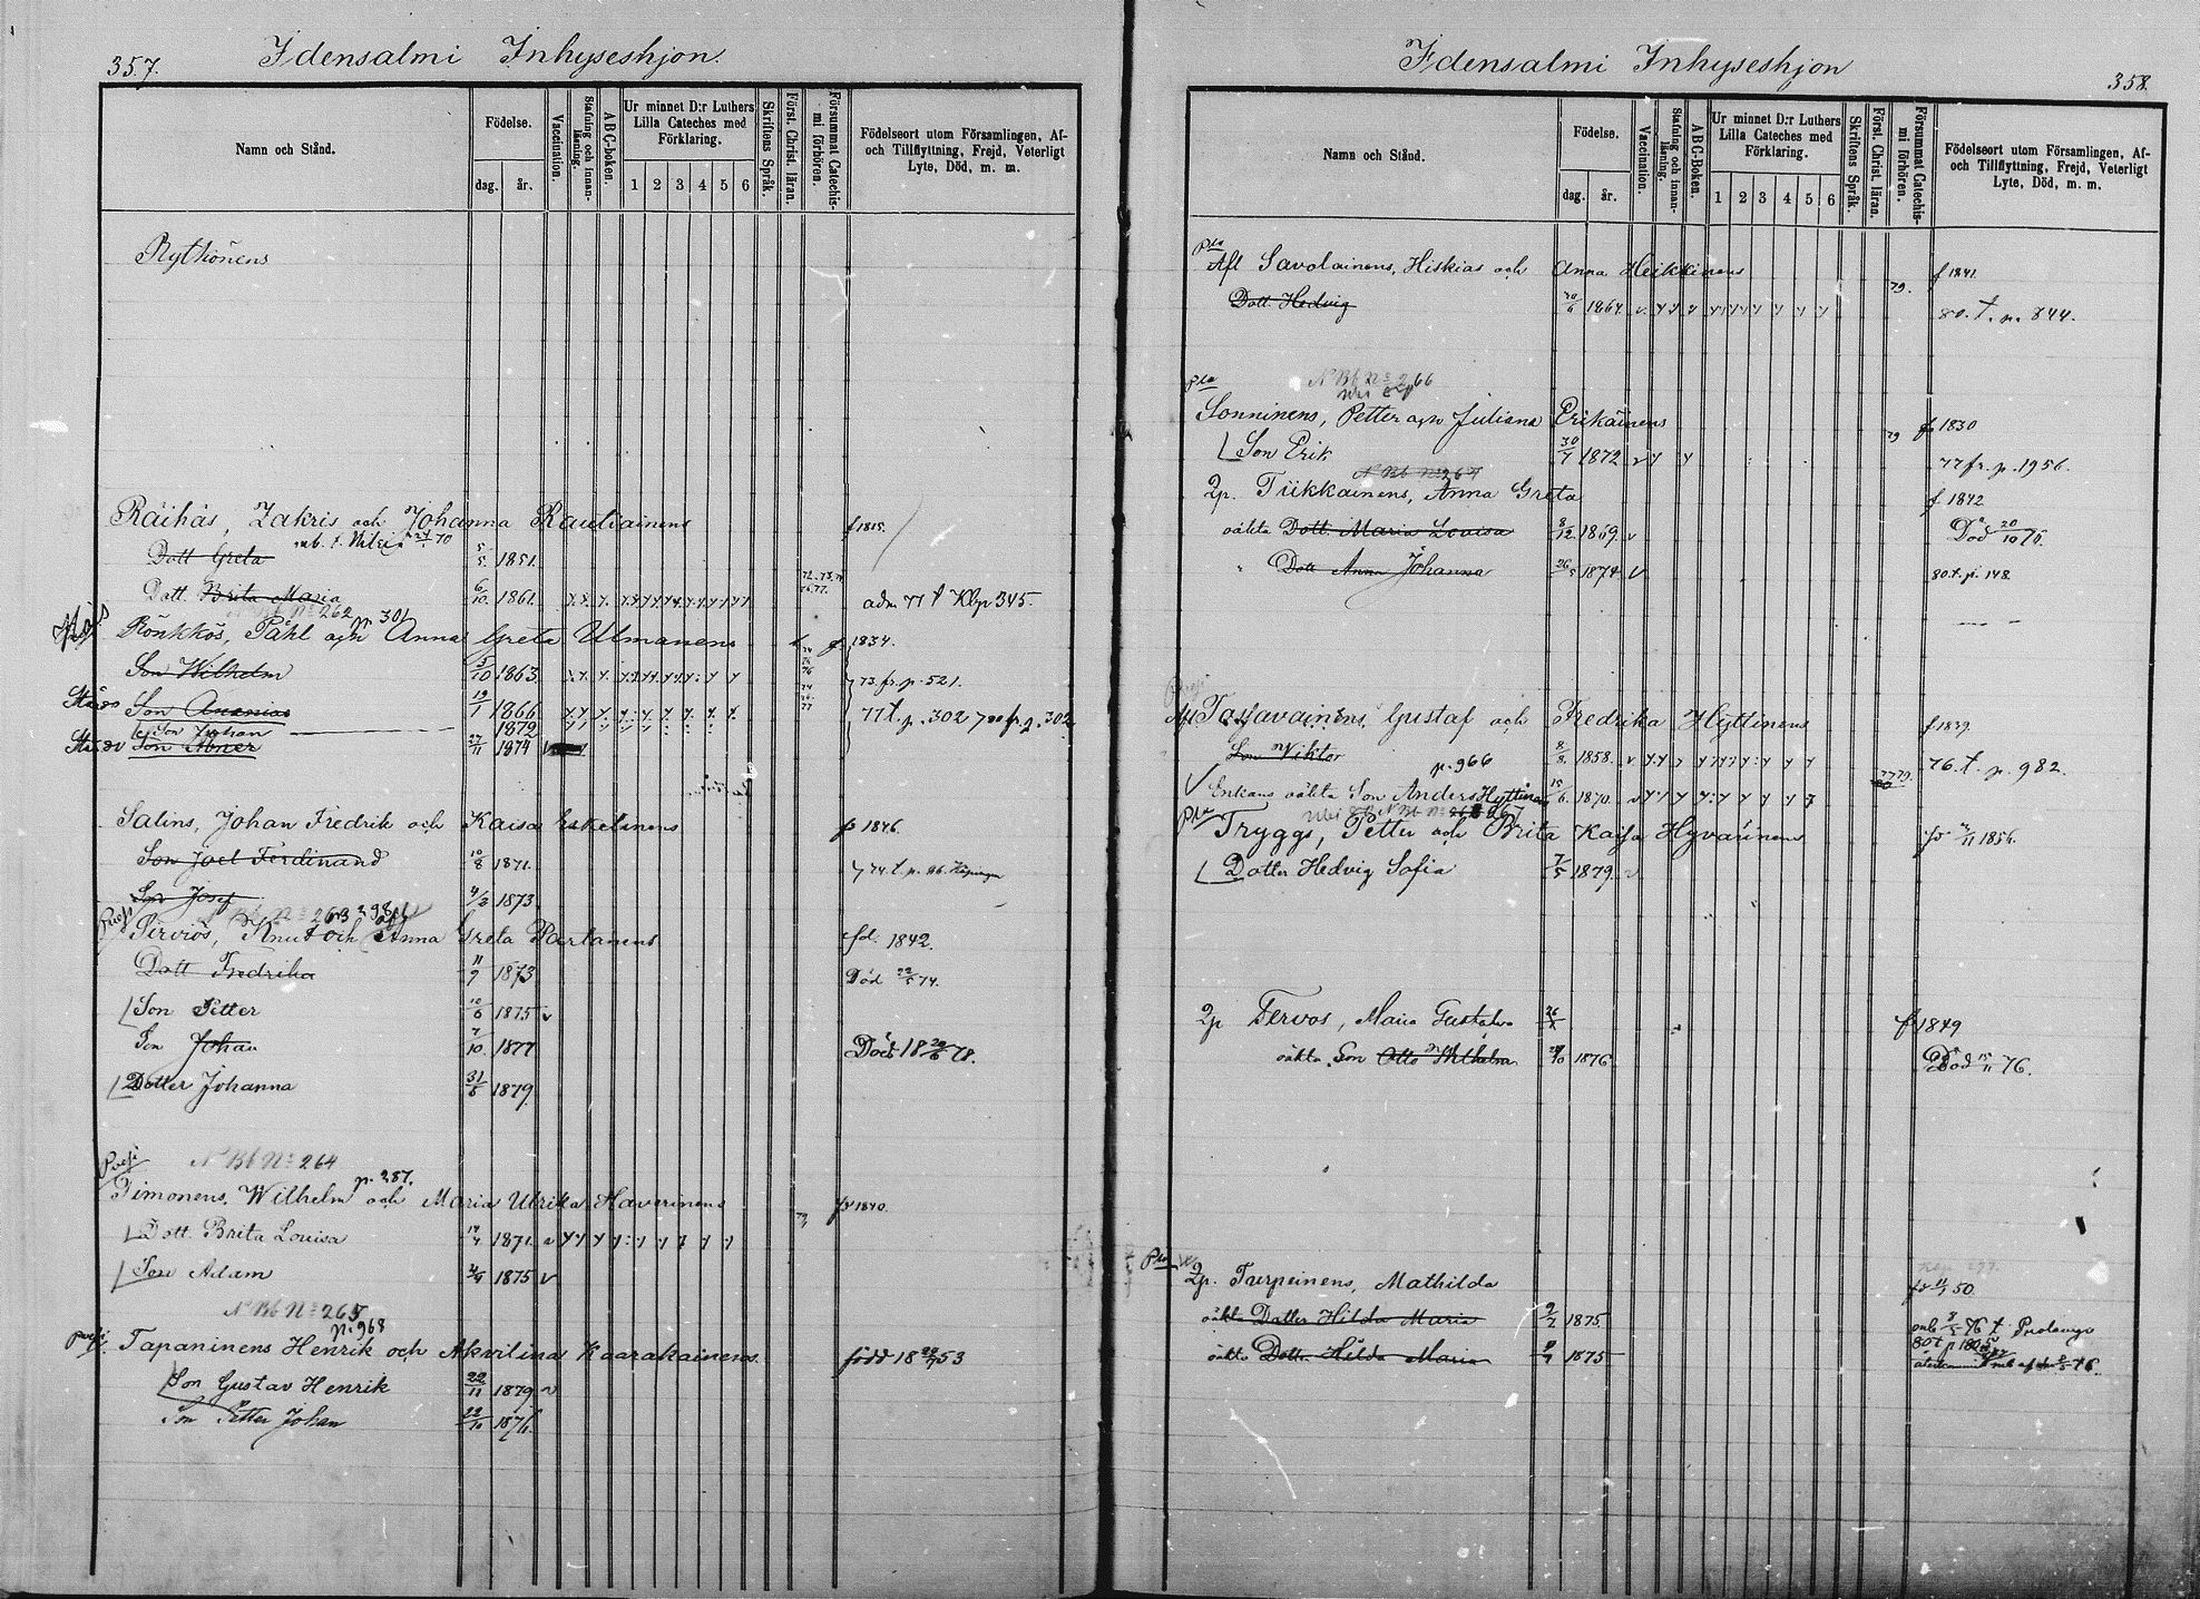 357.
Idensalmi Inhyseshjon.
Namn och Stånd.
Födelse.
dag. år.
Vaccination.
Stafning och innan-läsning.
ABC-boken.
Ur minnet D:r Luthers Lilla Cateches med Förklaring.
1 2 3 4 5 6
Skriftens Språk.
Först. Christ. läran.
Försummat Catechis-mi förhören.
Födelseort utom Församlingen, Af- och Tillflyttning, Frejd, Veterligt Lyte, Död, m. m.
Rythönens
Räihäs, Zakris och Johanna Rautiainens f 1815.
Dott Greta 5/5 1851.
Dott. Brita Maria 6/10 1861. adm 77 t Kbp 345.
N Bb No 262 p. 301
Rönkkös, Påhl och Anna Greta Ulmanens f 1834.
Son Wilhelm 5/10 1863. 73. fr. p. 521.
Son Ananias 19/1 1866 77 t. p. 302 fr. p. 302
Son Johan 1872
Son Abner 27/11 1874
Salins, Johan Fredrik och Kaisa Eskelinens f 1846.
Son Joel Ferdinand 10/8 1871. 74. t. p.
Son Josef 4/2 1873.
N Bb No 263 298
Pirviös, Knut och Anna Greta Partanens fd. 1842.
Dott Fredrika 11/9 1873 Död 22/5 74.
Son Petter 10/6 1875 v
Son Johan 7/10. 1877 Död 18 29/6 78.
Dotter Johanna 31/5 1879.
N Bb No 264
p. 287.
Timonens, Wilhelm och Maria Ulrika Haverinens 79 f 1840.
Dott. Brita Lovisa 14/4 1871.
Son Adam 4/9 1875 v
N Bb No 265
p. 968
Tapaninens Henrik och Akvilina Kaarakainens. född 18 53
Son Gustav Henrik 22/11 1879
Son Petter Johan 22/10 1876.
Idensalmi Inhyseshjon
358.
Namn och Stånd.
Födelse.
dag. år.
Vaccination.
Stafning och innan-läsning.
ABC-Boken.
Ur minnet D:r Luthers Lilla Cateches med Förklaring.
1 2 3 4 5 6
Skriftens Språk.
Först. Christ. läran.
Försummat Catechis-mi förhören.
Födelseort utom Församlingen, Af- och Tillflyttning, Frejd, Veterligt Lyte, Död, m. m.
Afl Savolainens, Hiskias och Anna Heikkinens f 1841.
Dott. Hedvig 20/6 1864. 79. 80. t. p. 844.
N Bb No 266
Sonninens, Petter och Juliana Erikäinens 79 f 1830
Son Erik 30/7 1872 77 fr. p. 1956.
N Bb No 267
Qp. Tiikkainens, Anna Greta f 1842
oäkta Dott. Maria Lovisa 8/12 1869. v Död 20/10 75.
" Dott Anna Johanna 26/5 1874 v 80. t. p. 148.
Afl Tarjavainens, Gustaf och Fredrika Hyttinens f 1839.
Son Wiktor 8/8. 1858. 76. t. p. 982.
p. 966
Enkans oäkta Son Anders Hyttinen 15/6. 1870.
N Bb No 267
Tryggs, Petter och Brita Kaisa Hyvärinens 1856.
Dotter Hedvig Sofia 7/5 1879.
Qp Tervos, Maria Gustafva f 1849
oäkta Son Otto Wilhelm 1876 Död 15/11 76.
Qp. Turpeinens, Mathilda 50.
oäkta Dotter Hilda Maria 9/7 1875.
oäkta Dott. Hilda Maria 9/7 1875